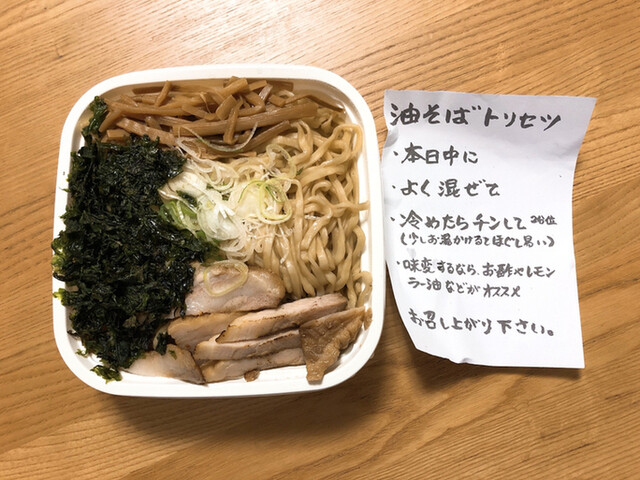 油そばトリセツ
・本日中に
・よく混ぜて
・冷めたらチンして
(少しお湯かけるとほぐし易い)
・味変するなら、お酢やレモン
ラー油などがオススメ
お召し上がり下さい。